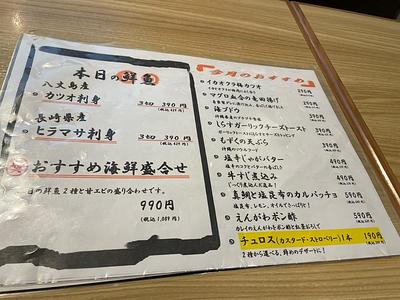 本日の鮮魚
八丈島産
カツオ刺身 3切 390円
(税込429円)
長崎県産
ヒラマサ刺身 3切 390円
(税込429円)
おすすめ海鮮盛合せ
日の鮮魚2種と甘エビの盛り合わせです。
990円
(税込1,089円)
今月のおすすめ
イカオクラ梅カツオ 290円
マグロ血合の竜田揚げ 390円
海ブドウ 390円
しらすガーリックチーズトースト 390円
もずくの天ぷら 390円
塩辛じゃがバター 490円
牛すじ煮込み 490円
じっくり煮込んだ
真鯛と塩昆布のカルパッチョ 590円
塩昆布、レモン、オイルでさっぱりと!
えんがわポン酢 590円
カレイのえんがわをポン酢と
チュロス(カスタード・ストロベリー)1本 190円
2種から選べる、締めのデザートに!